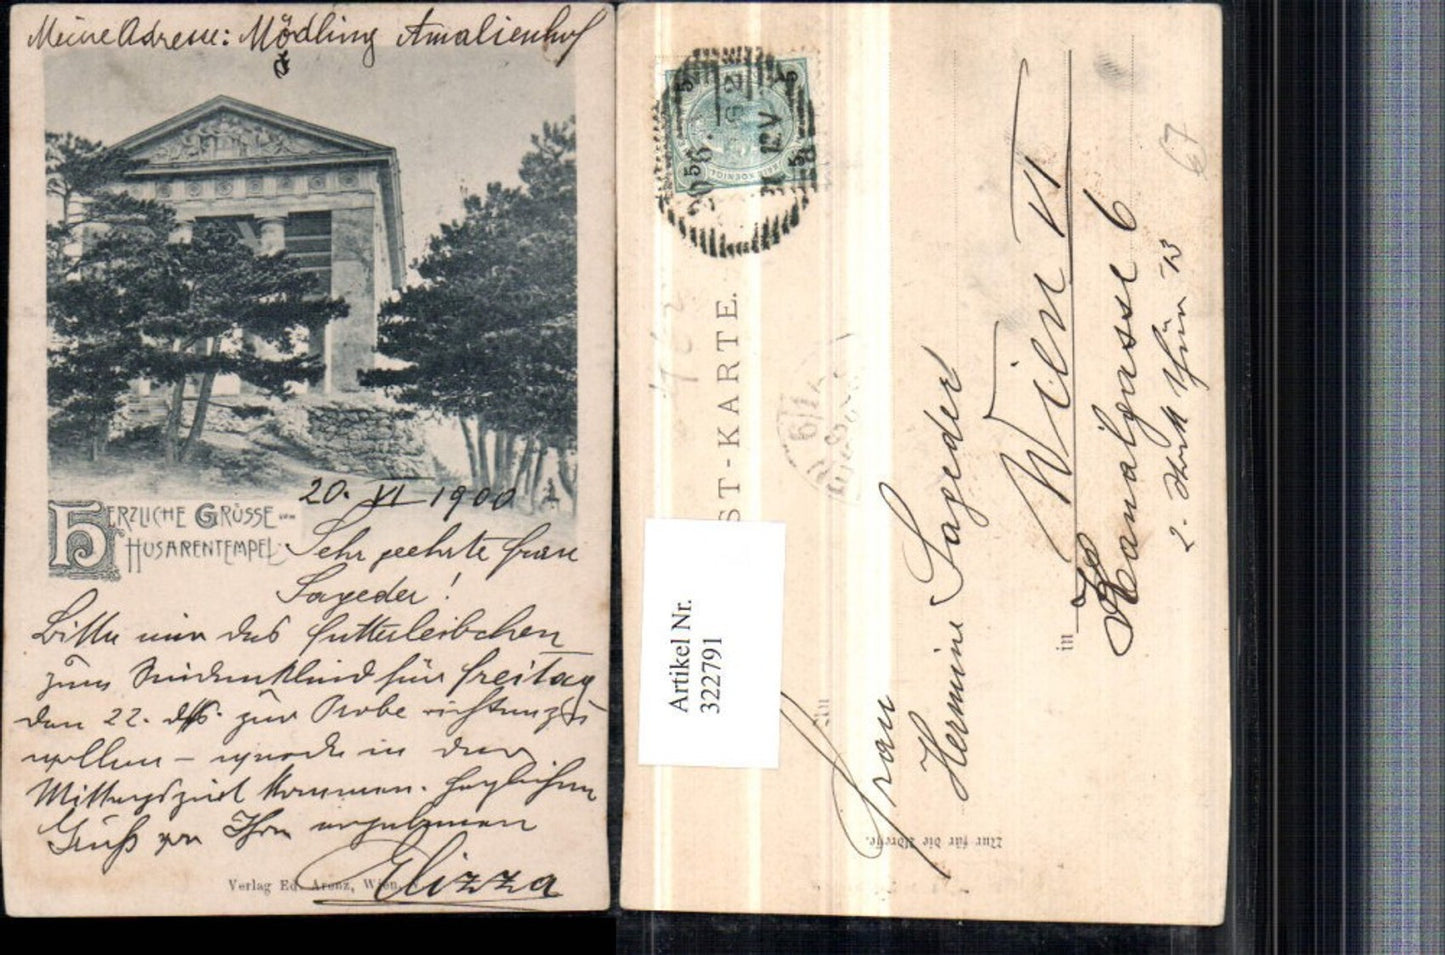 Meine Adresse: Mödling Amalienhof
20. VI 1900
HERZLICHE GRÜSSE VOM
HUSARENTEMPEL
Sehr geehrte Frau
Sageder!
Bitte mir das Futterleibchen
zum für Freitag
den 22. ds. zur Probe richten zu
wollen – werde in der
Mittagszeit kommen. Herzlichen
Gruß von Ihrer ergebenen
Verlag Ed. Arenz, Wien
POST-KARTE.
An
Frau
Hermine Sageder
in Wien VI
Kanalgasse 6
2. Stock Thür 13
Nur für die Adresse.
67
Artikel Nr.
322791